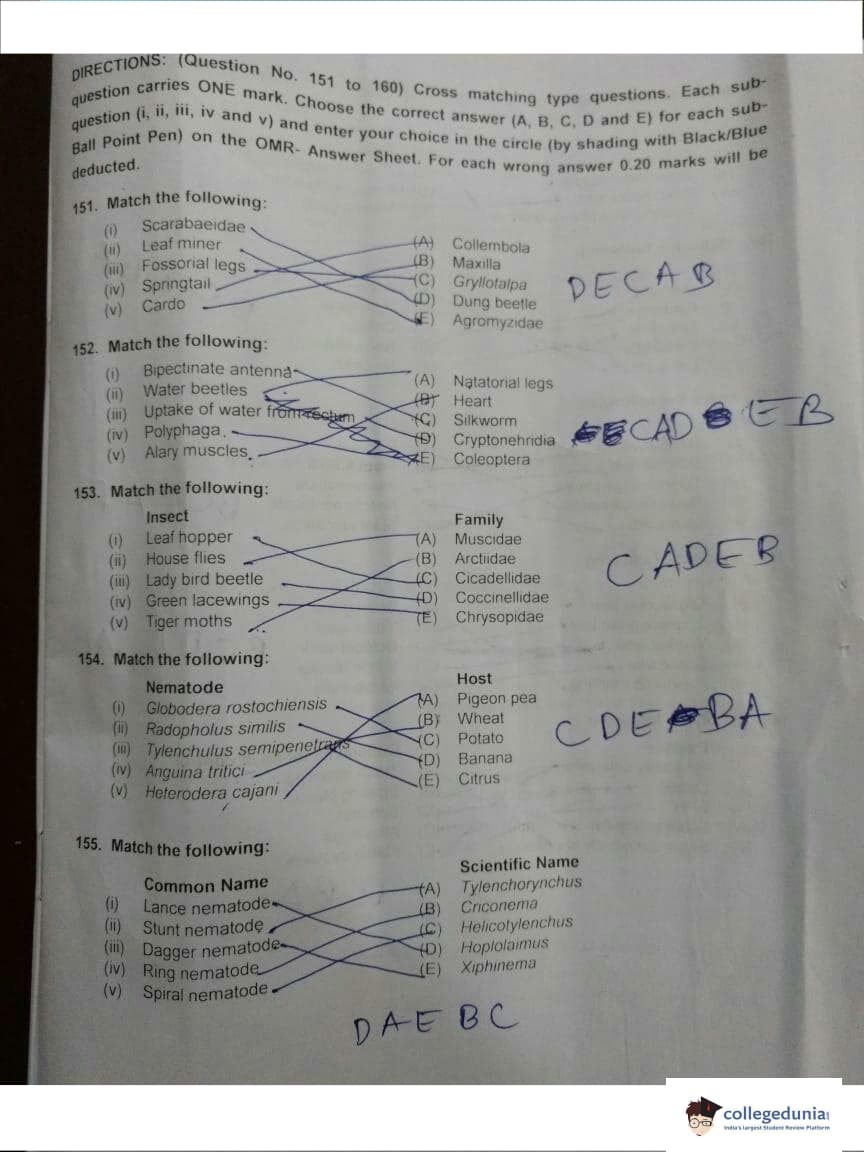 DIRECTIONS: (Question No. 151 to 160) Cross matching type questions. Each sub-
question carries ONE mark. Choose the correct answer (A, B, C, D and E) for each sub-
question (i, ii, iii, iv and v) and enter your choice in the circle (by shading with Black/Blue
Ball Point Pen) on the OMR- Answer Sheet. For each wrong answer 0.20 marks will be
deducted.
151. Match the following:
(i) Scarabaeidae
(ii) Leaf miner (A) Collembola
(iii) Fossorial legs (B) Maxilla
(iv) Springtail (C) Gryllotalpa
(v) Cardo (D) Dung beetle
(E) Agromyzidae
DECAB
152. Match the following:
(i) Bipectinate antenna
(ii) Water beetles (A) Natatorial legs
(iii) Uptake of water from rectum (B) Heart
(iv) Polyphaga (C) Silkworm
(v) Alary muscles (D) Cryptonehridia
(E) Coleoptera
CAD EB
153. Match the following:
Insect Family
(i) Leaf hopper (A) Muscidae
(ii) House flies (B) Arctiidae
(iii) Lady bird beetle (C) Cicadellidae
(iv) Green lacewings (D) Coccinellidae
(v) Tiger moths (E) Chrysopidae
CADEB
154. Match the following:
Nematode Host
(i) Globodera rostochiensis (A) Pigeon pea
(ii) Radopholus similis (B) Wheat
(iii) Tylenchulus semipenetrans (C) Potato
(iv) Anguina tritici (D) Banana
(v) Heterodera cajani (E) Citrus
CDE BA
155. Match the following:
Common Name Scientific Name
(i) Lance nematode (A) Tylenchorynchus
(ii) Stunt nematode (B) Criconema
(iii) Dagger nematode (C) Helicotylenchus
(iv) Ring nematode (D) Hoplolaimus
(v) Spiral nematode (E) Xiphinema
DAEBC
collegedunia
India's largest Student Review Platform